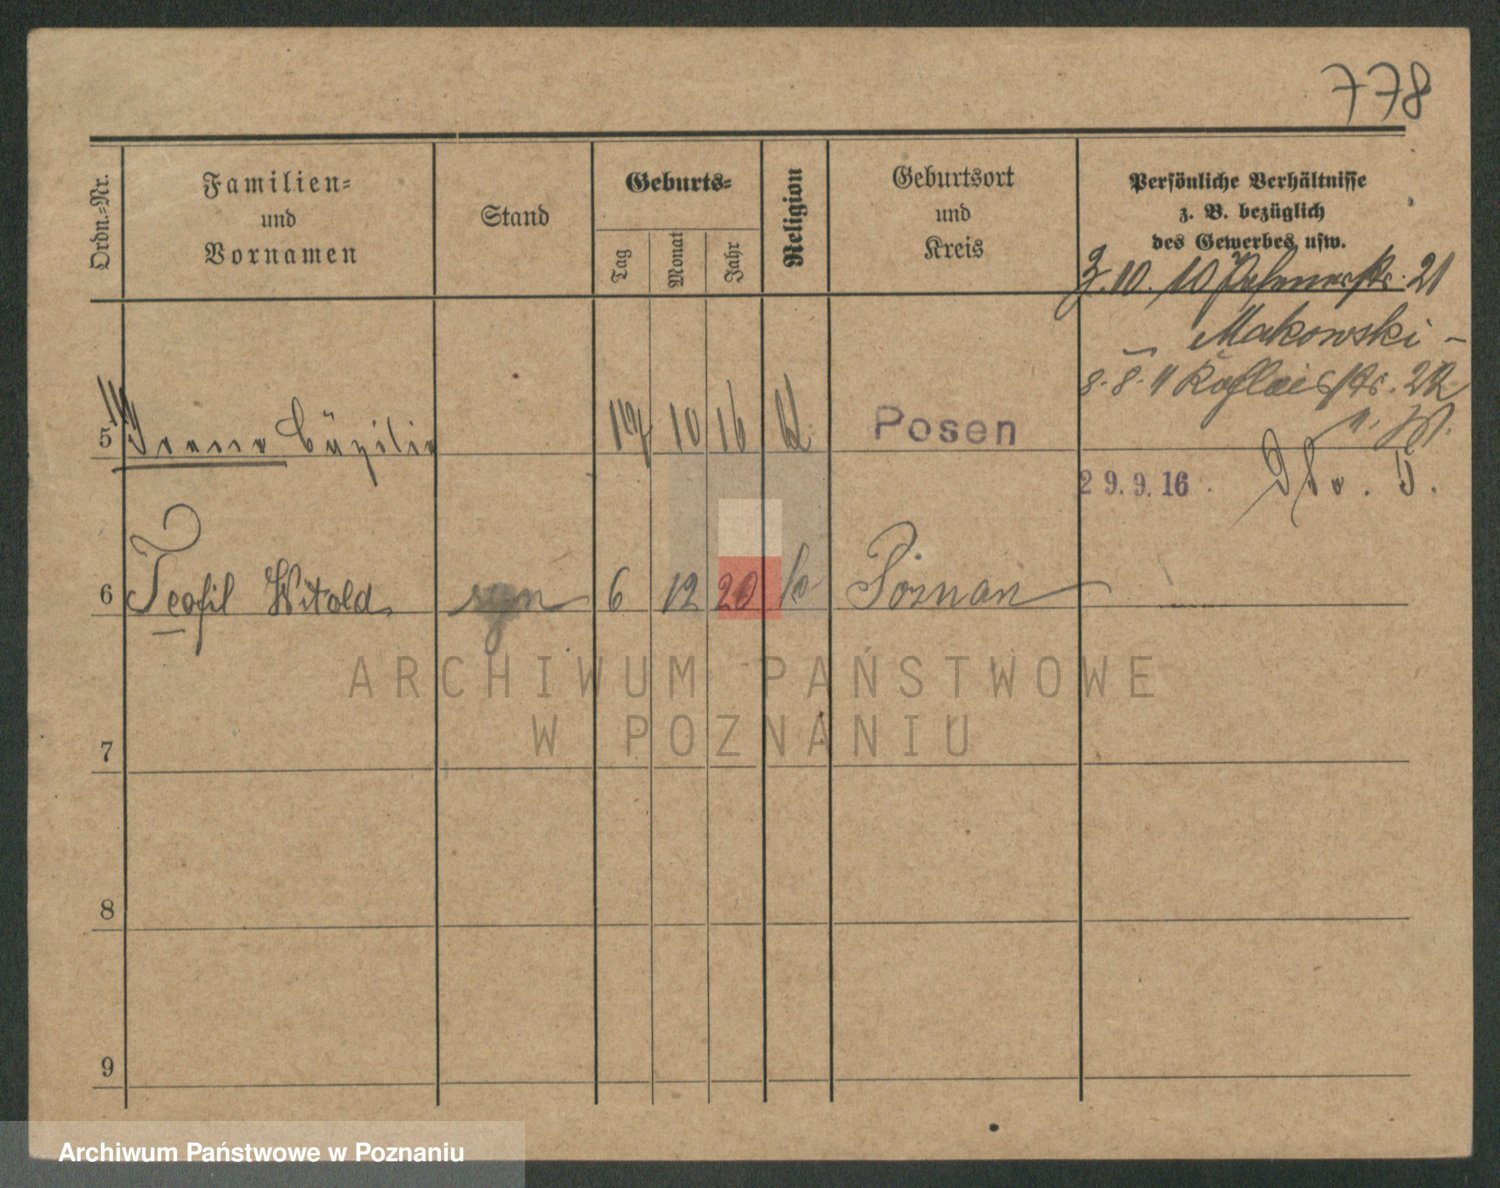 778
Ordn.=Nr.
Familien=
und
Vornamen
Stand
Geburts=
Tag
Monat
Jahr
Religion
Geburtsort
und
Kreis
Persönliche Verhältnisse
z. B. bezüglich
des Gewerbes usw.
3.10.10 21
Makowski -
8.8.11 22
5 Irene Cäzilie 10 16 Posen
29.9.16
6 Teofil Witold syn 6 12 20 k Poznań
7
8
9
ARCHIWUM PAŃSTWOWE
W POZNANIU
Archiwum Państwowe w Poznaniu